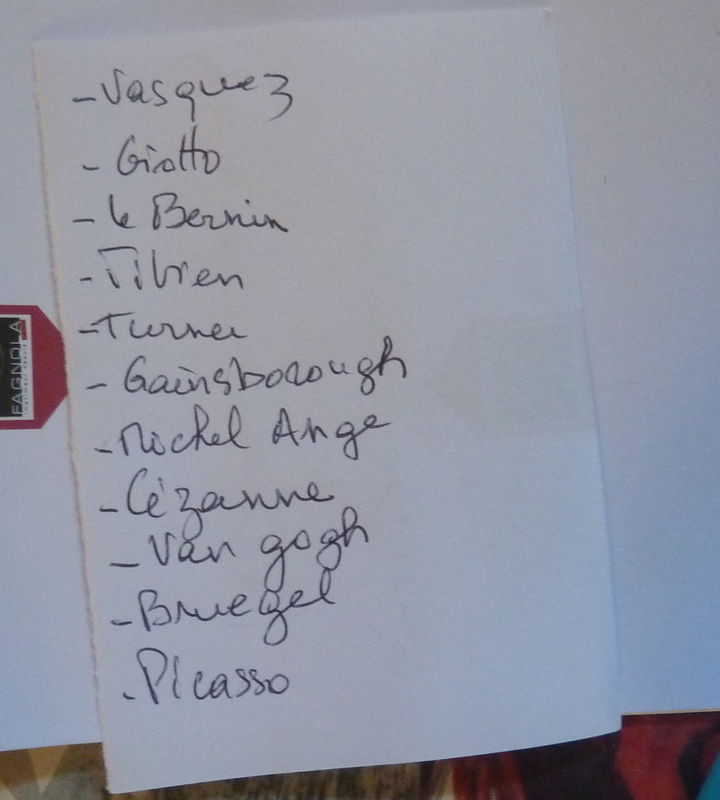 - Vasquez
- Giotto
- le Bernin
- Titien
- Turner
- Gainsborough
- Michel Ange
- Cézanne
- Van gogh
- Bruegel
- Picasso
FAGNOLA